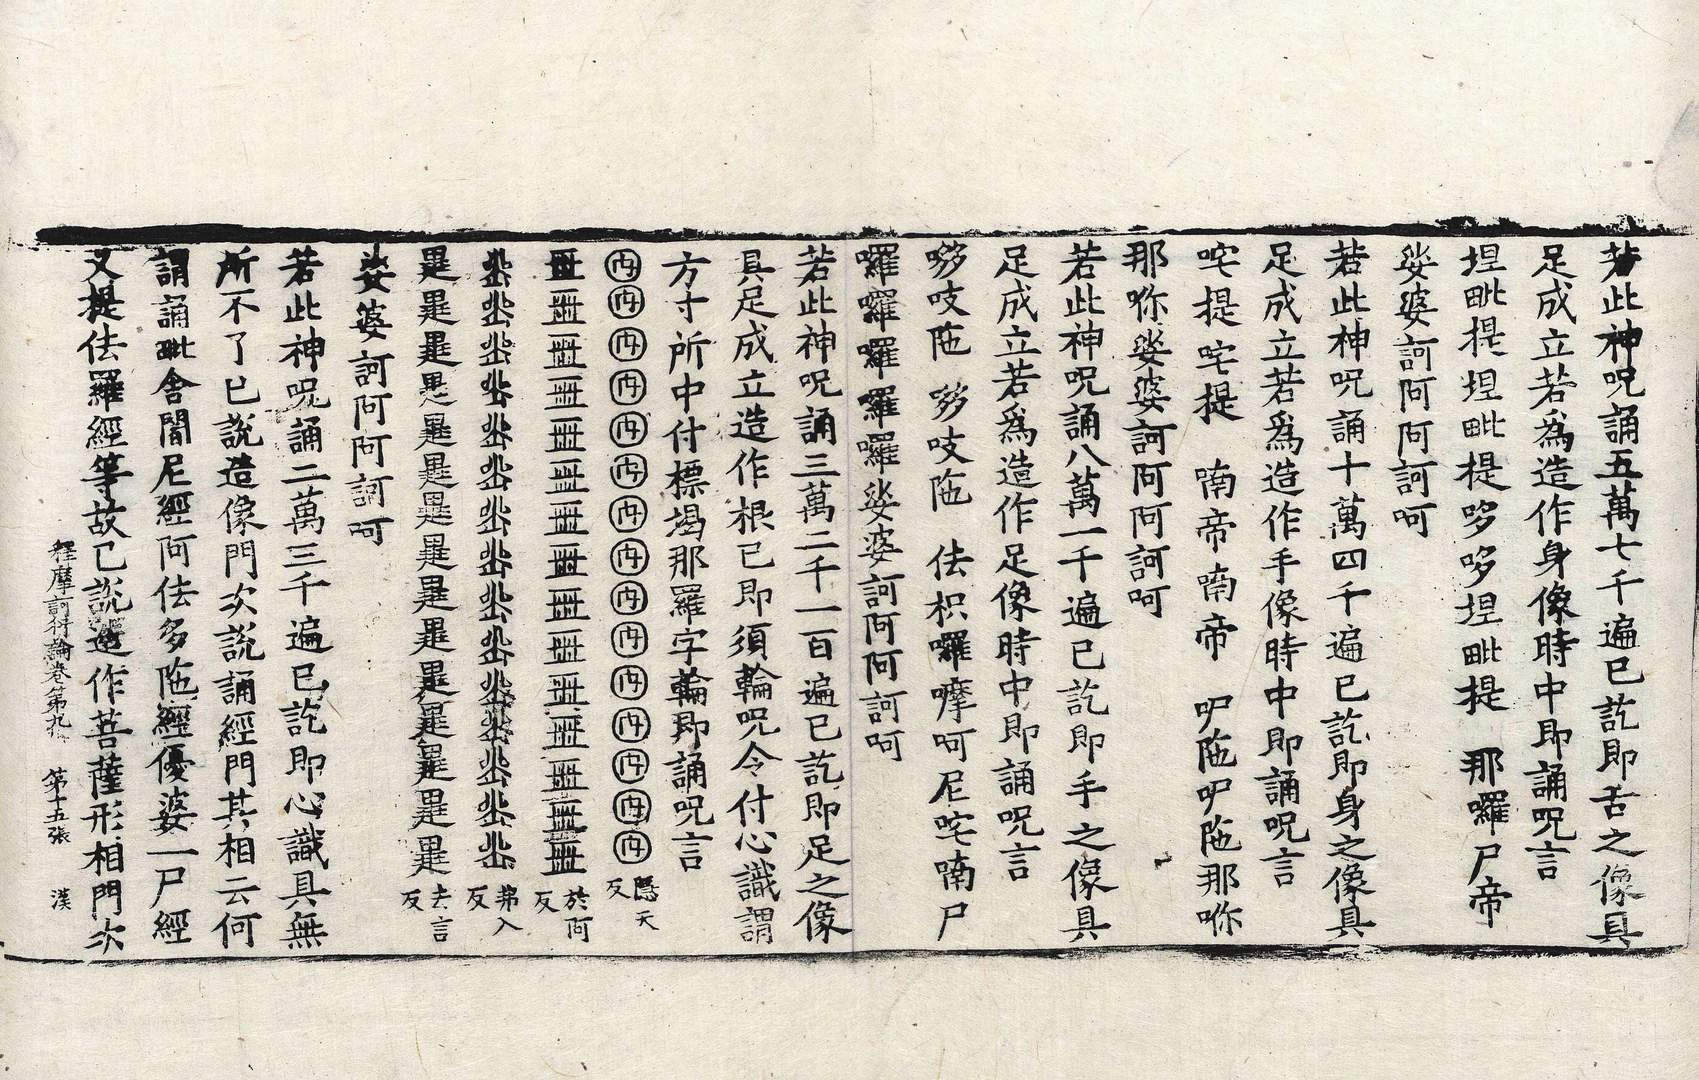 若此神呪誦五萬七千遍已訖即舌之像具
足成立若爲造作身像時中即誦呪言
埋毗提埋毗提哆哆埋毗提　那囉尸帝
娑婆訶阿阿訶呵
若此神呪誦十萬四千遍已訖即身之像具
足成立若爲造作手像時中即誦呪言
咤提咤提　喃帝喃帝　吵陁吵陁那㖿
那㖿娑婆訶阿阿訶呵
若此神呪誦八萬一千遍已訖即手之像具
足成立若爲造作足像時中即誦呪言
哆吱陁　哆吱陁　佉枳囉嚤呵尼咤喃尸
囉囉囉囉囉娑婆訶阿阿訶呵
若此神呪誦三萬二千一百遍已訖即足之像
具足成立造作根已即須輪呪令付心識謂
方寸所中付標竭那羅字輪即誦呪言
隱天反
於阿反
弗入反
去言反
娑婆訶阿阿訶呵
若此神呪誦二萬三千遍已訖即心識具無
所不了已說造像門次說誦經門其相云何
謂誦毗舍闍尼經阿佉多陁經優婆一尸經
又提佉羅經等故已說造作菩薩形相門次
釋摩訶衍論卷第九　第十五張　漢